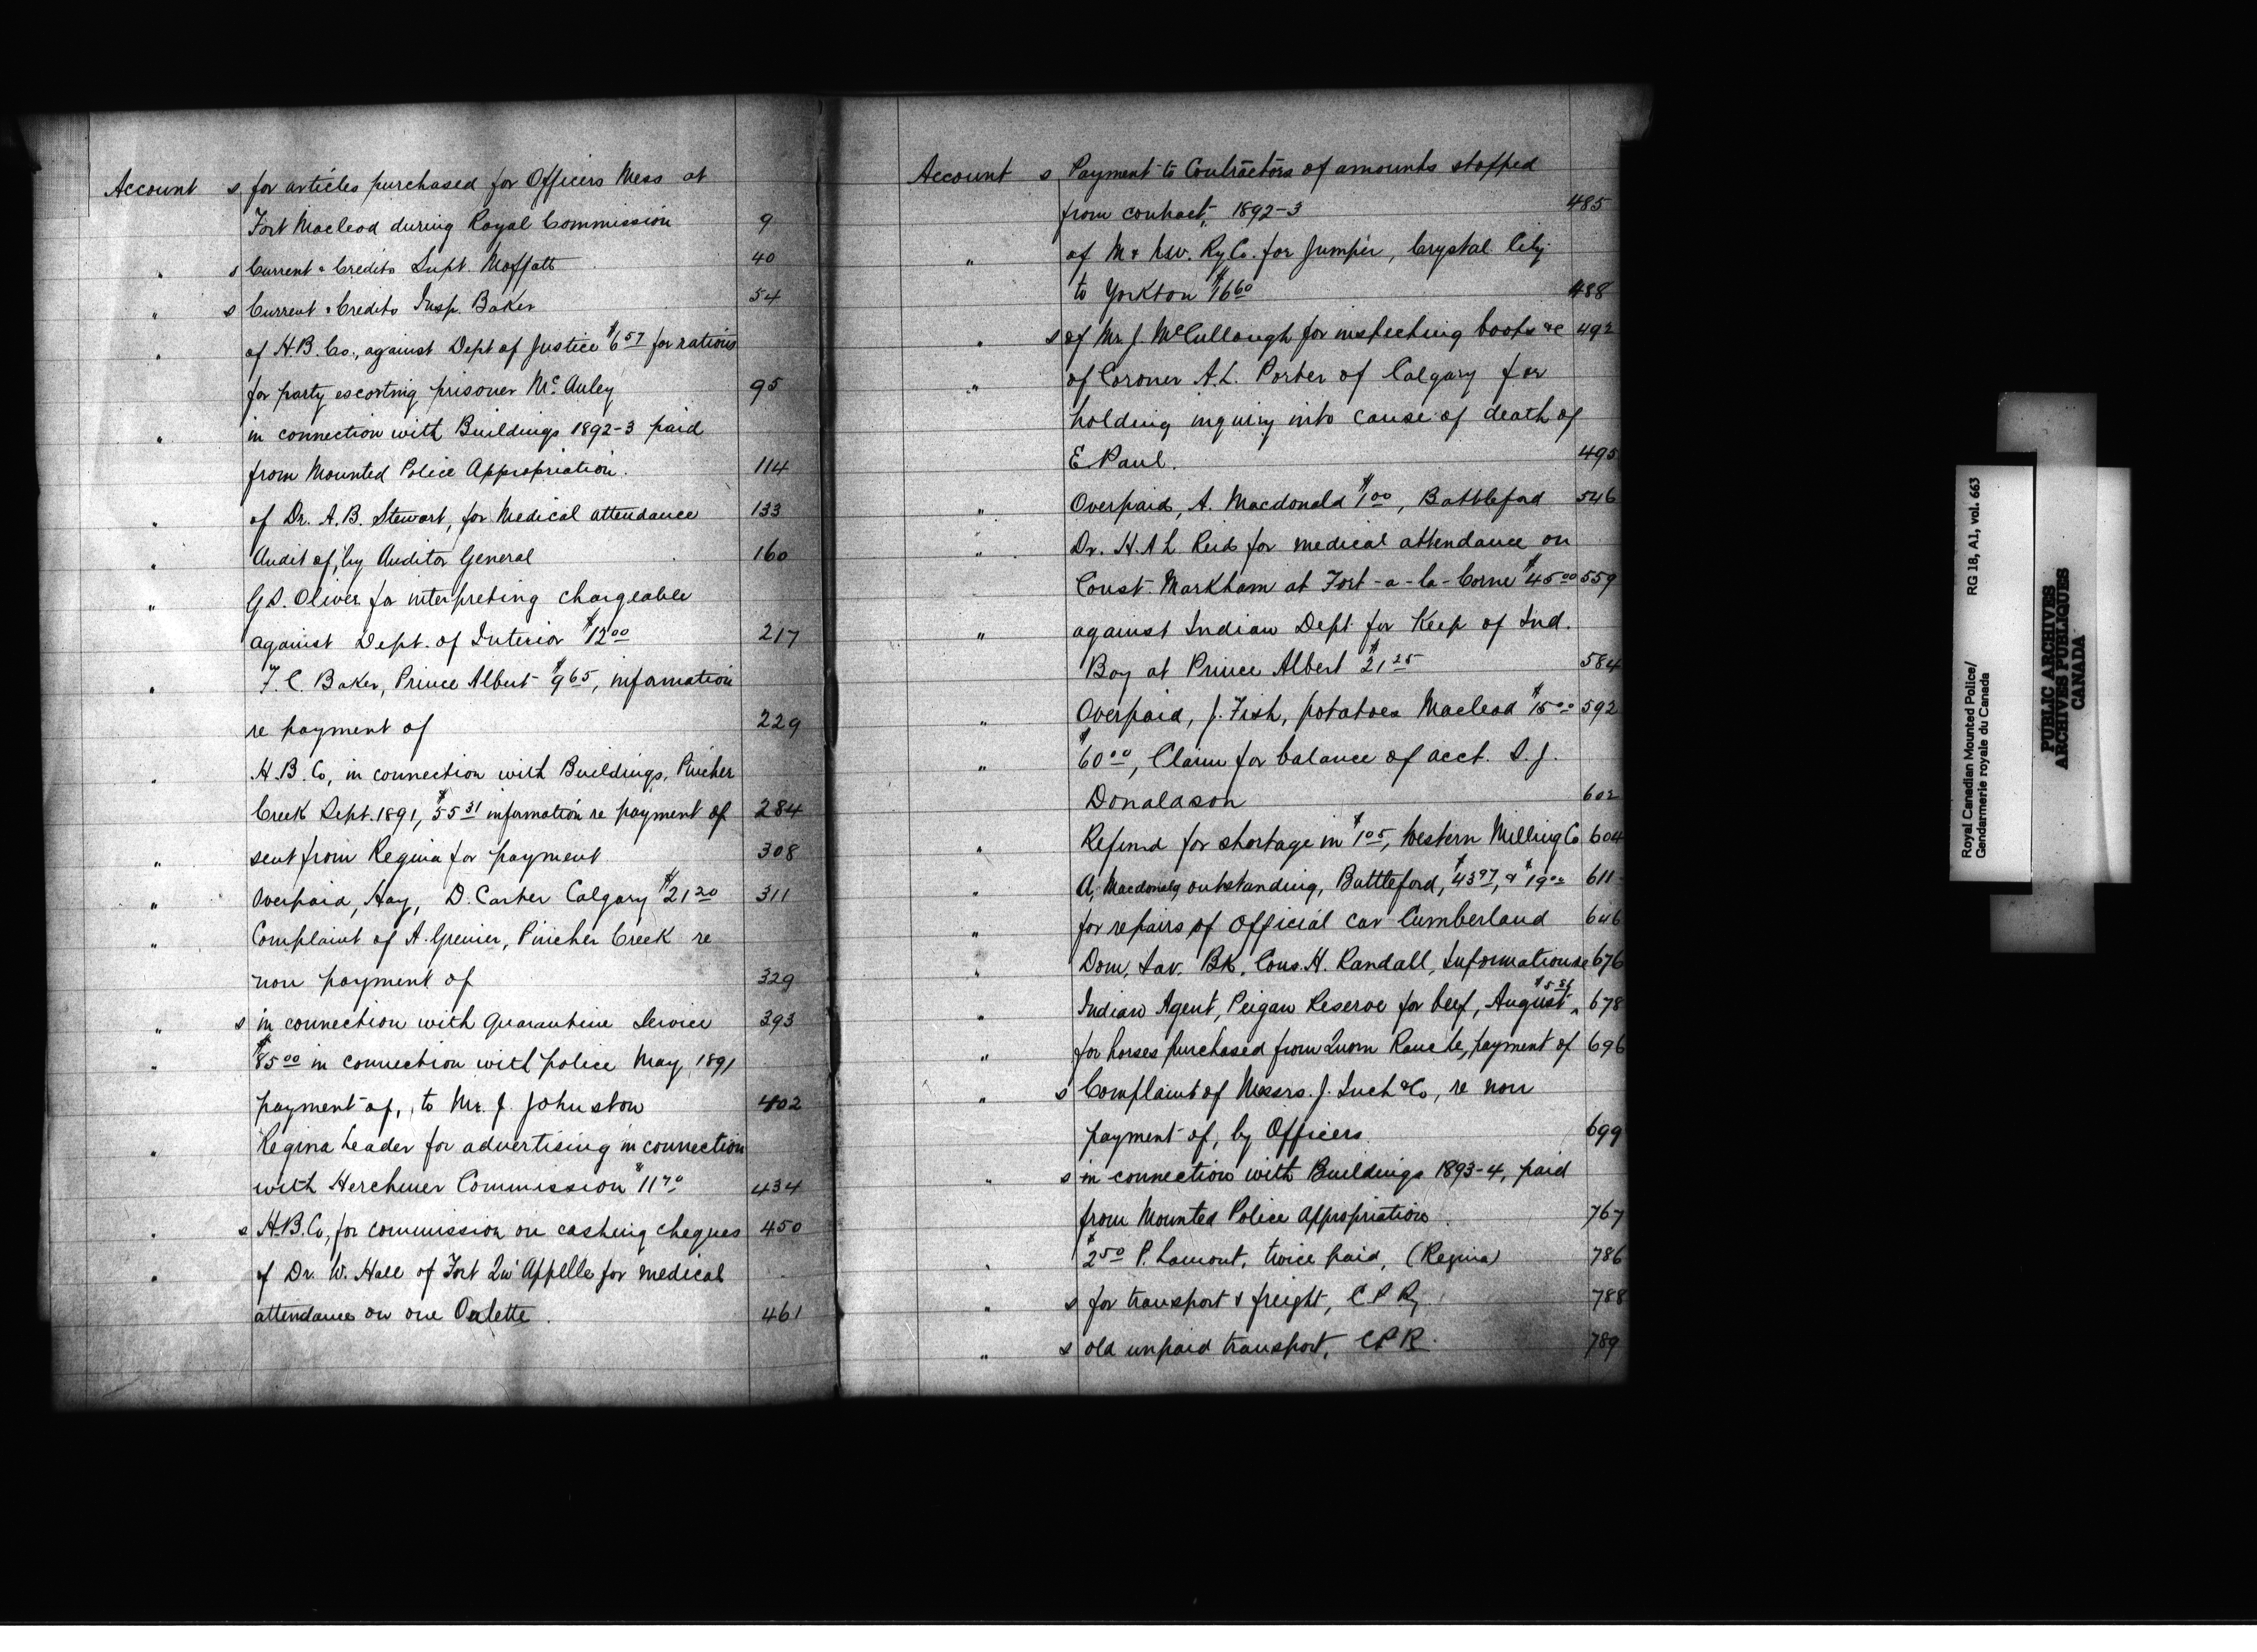 Account s for articles purchased for Officers Mess at
Fort Macleod during Royal Commission 9
" s Current & Credits Supt. Moffatt 40
" s Current & Credits Insp. Baker 54
" of H.B. Co., against Dept of Justice $6 57 for rations
for party escorting prisoner Mc Auley 95
" in connection with Buildings 1892-3 paid
from Mounted Police Appropriation. 114
" of Dr. A.B. Stewart, for Medical attendance 133
" Audit of, by Auditor General 160
" G.S. Oliver for interpreting chargeable
against Dept. of Interior $12 00 217
" F.C. Baker, Prince Albert $9 65, information
re payment of 229
" H.B. Co, in connection with Buildings, Pincher
Creek Sept. 1891, $55 31 information re payment of 284
" sent from Regina for payment 308
" Overpaid, Hay, D. Carter Calgary $21 20 311
" Complaint of A. Grenier, Pincher Creek re
non payment of 329
" s in connection with Quarantine Service 393
" $85 00 in connection with police May 1891
payment of, to Mr. J. Johnston 402
" Regina Leader for advertising in connection
with Herchmer Commission $11 70 434
" s H.B. Co, for commission on cashing cheques 450
" of Dr. W. Hall of Fort Qu'Appelle for medical
attendance on one Oulette. 461
Account s Payment to Contractors of amounts stopped
from contract, 1892-3 485
" of M & N.W. Ry Co. for Jumper, Crystal City
to Yorkton $16 60 488
" s of Mr. J. McCullough for inspecting boots &c 492
" of Coroner A.L. Porter of Calgary for
holding inquiry into cause of death of
E Paul. 495
" Overpaid, A. Macdonald $1 00, Battleford 546
" Dr. H.A L. Reid for medical attendance on
Const. Markham at Fort-a-la-Corne $45 00 559
" against Indian Dept. for Keep of Ind.
Boy at Prince Albert $21 25 584
" Overpaid, J. Fish, potatoes Macleod $15 00 592
" $60 00, Claim for balance of acct. S.J.
Donaldson 602
" Refund for shortage in $1 05, Western Milling Co 604
" A. Macdonald, outstanding, Battleford, $43 97, & $19 02 611
" for repairs of Official car Cumberland 646
" Dom. Sav. Bk, Cons. H. Randall, Information re 676
" Indian Agent, Peigan Reserve for beef, August $5 86 678
" for horses purchased from Quorn Ranche, payment of 696
" s Complaint of Messrs. J. Inch & Co, re non
payment of, by Officers 699
" s in connection with Buildings 1893-4, paid
from Mounted Police Appropriation. 767
" $2 50 P. Lamont, twice paid, (Regina) 786
" s for transport & freight, C P Ry. 788
" s old unpaid transport, C P R. 789
Royal Canadian Mounted Police/ RG 18, A1, vol. 663
Gendarmerie royale du Canada
PUBLIC ARCHIVES
ARCHIVES PUBLIQUES
CANADA